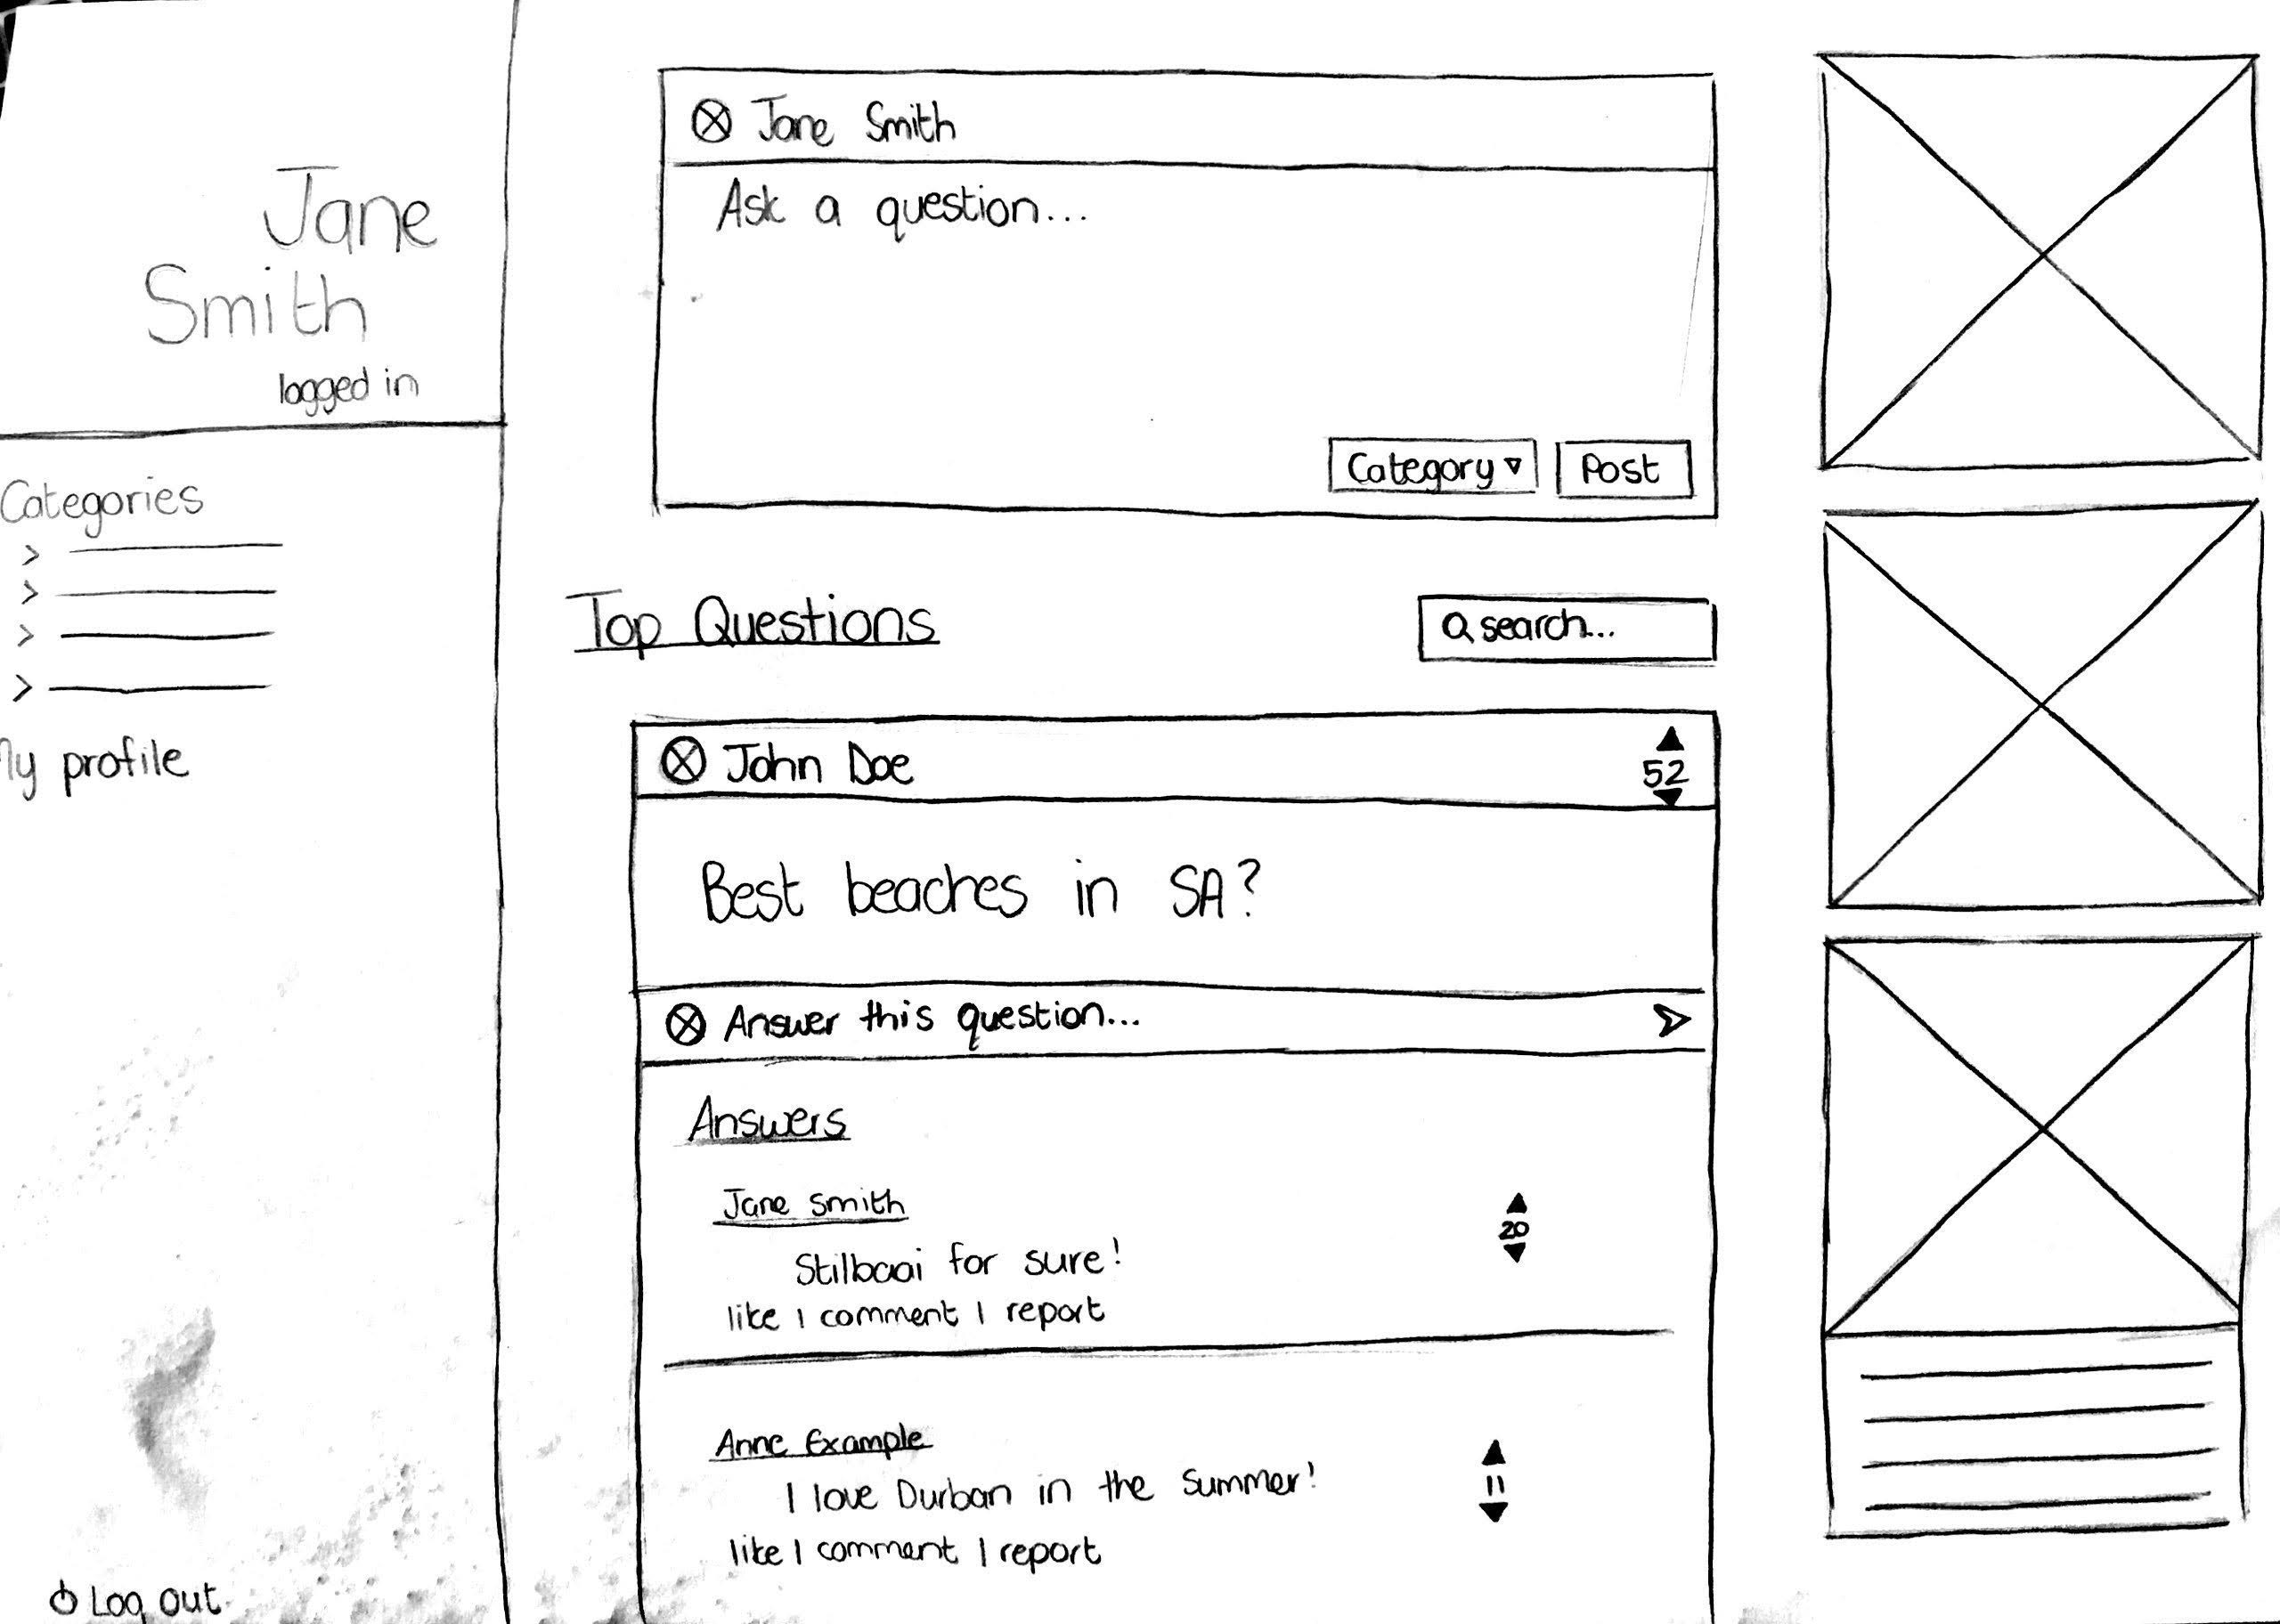 Jane
Smith
logged in
Categories
My profile
Log out
Jane Smith
Ask a question...
Category
Post
Top Questions
search...
John Doe
52
Best beaches in SA?
Answer this question...
Answers
Jane Smith
20
Stilbaai for sure!
like | comment | report
Anne Example
I love Durban in the Summer!
11
like | comment | report